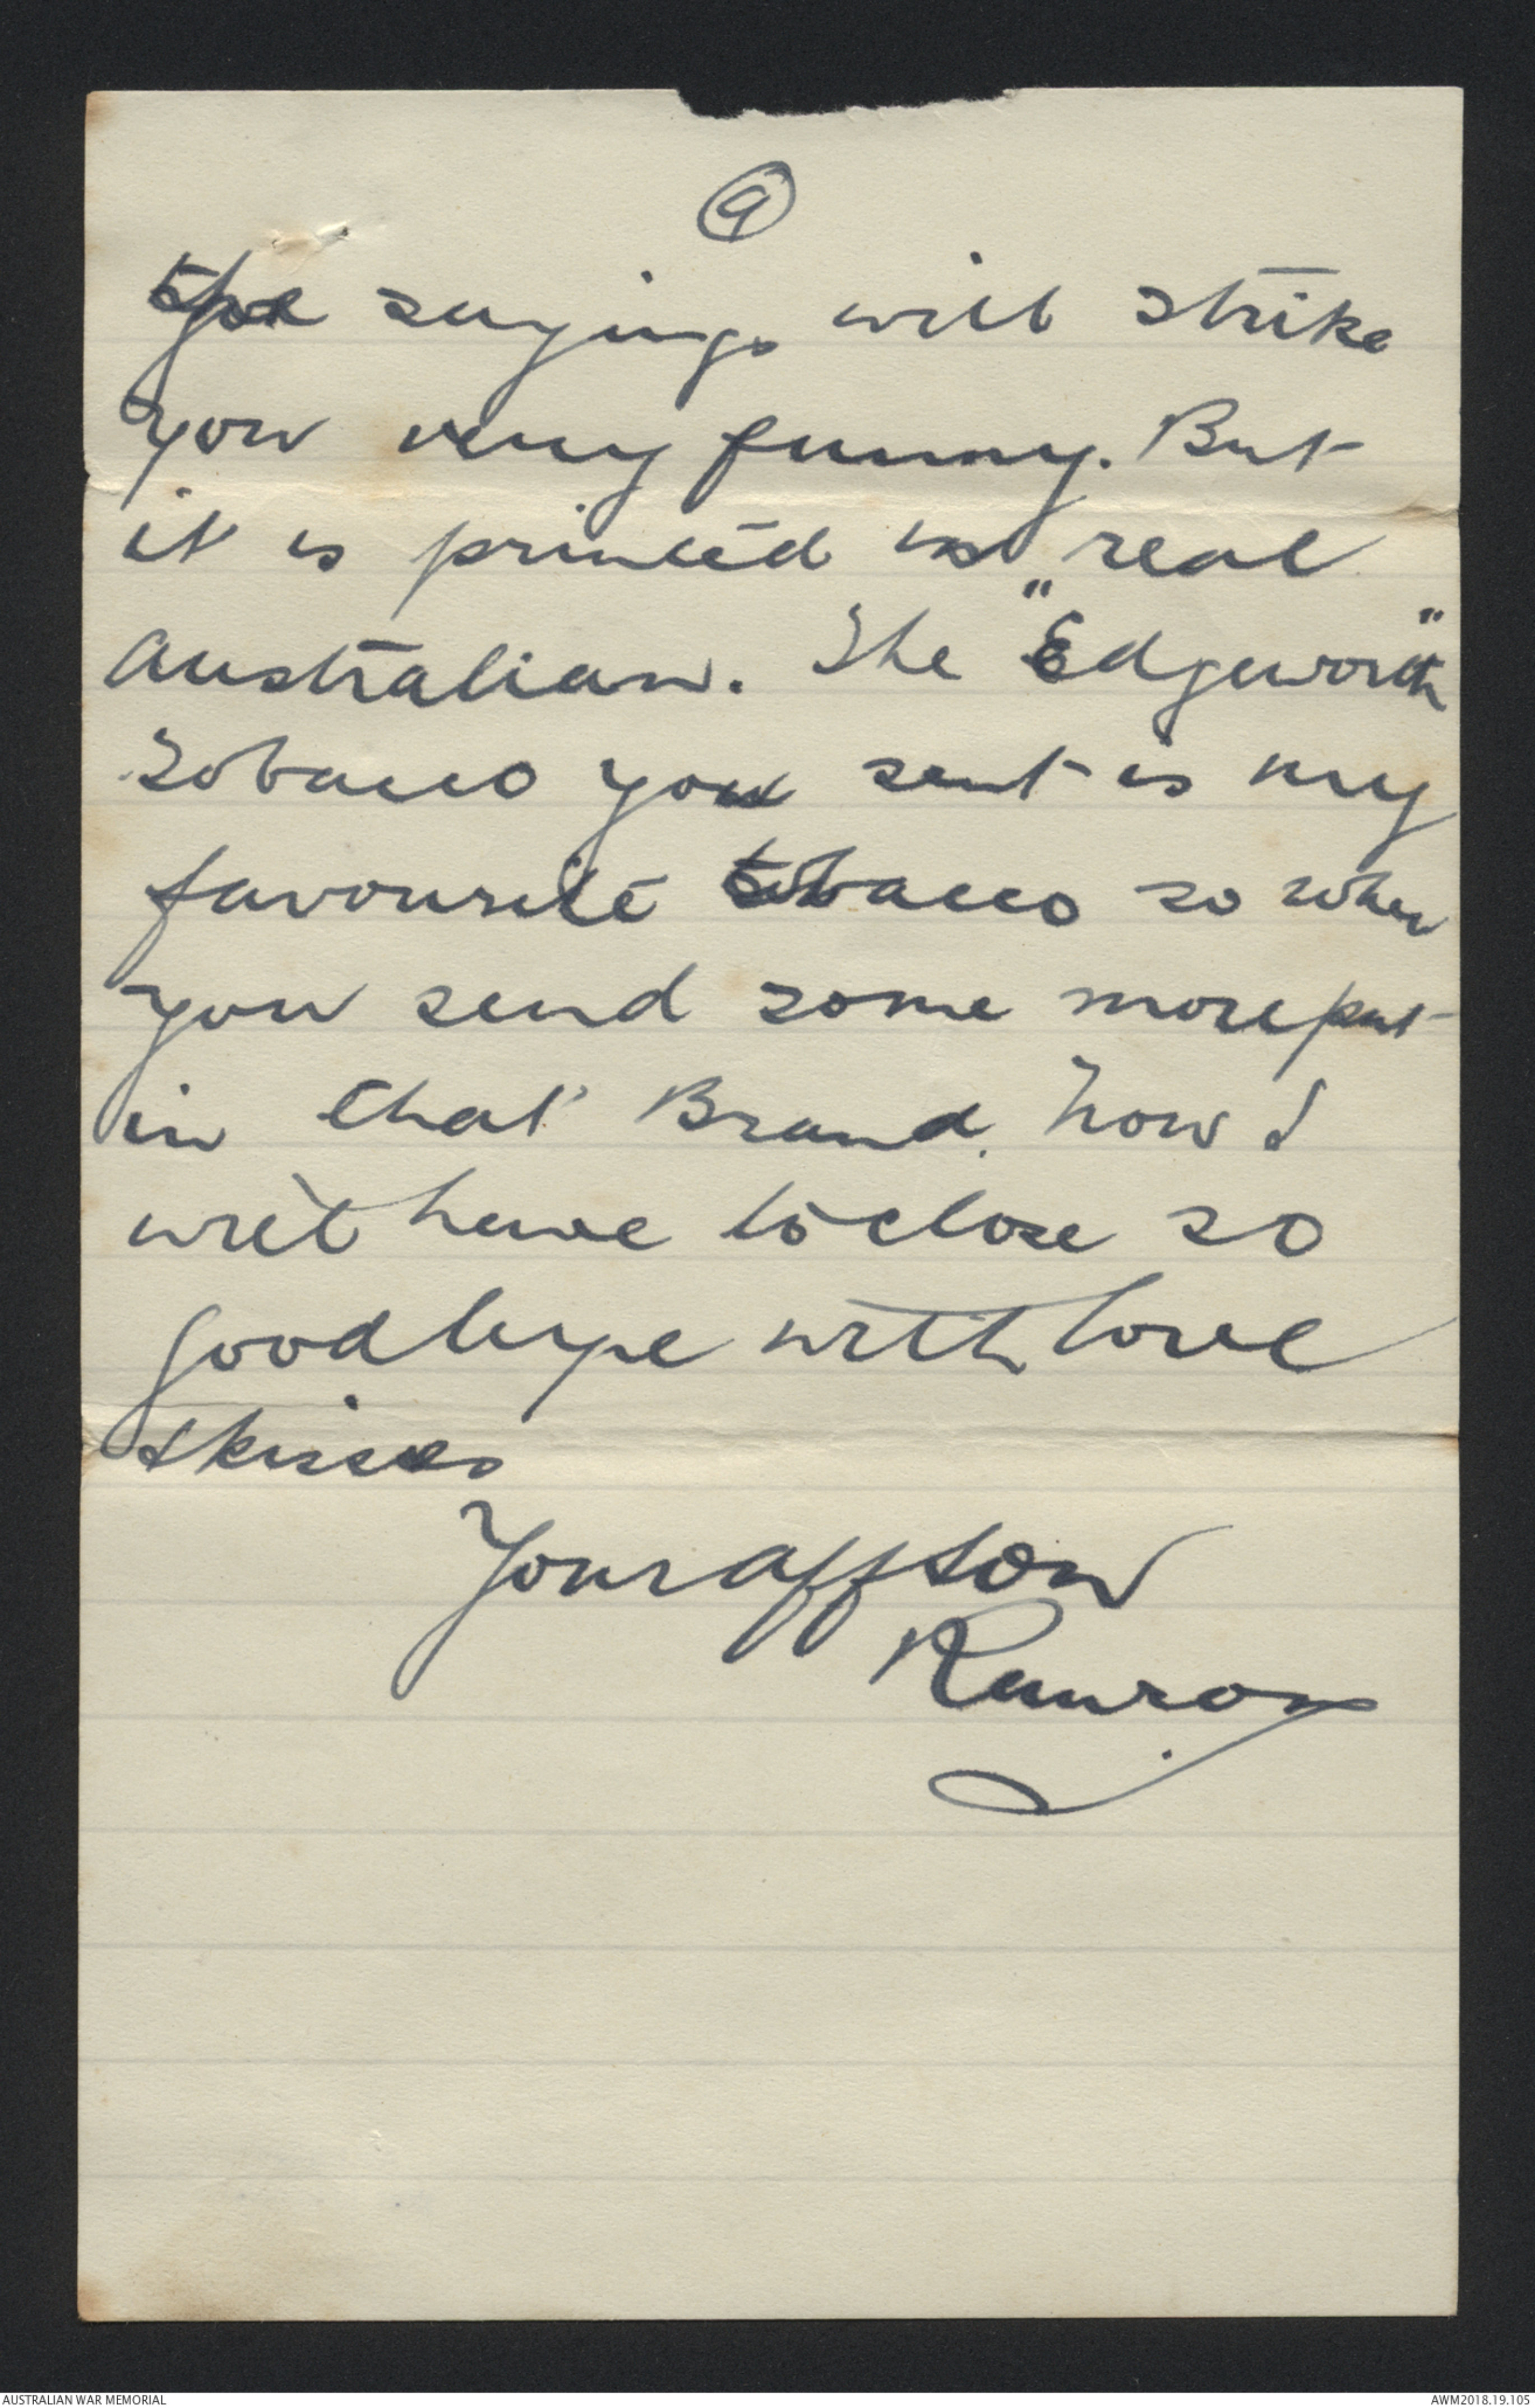 9
the sayings will strike
you very funny. But
it is printed in real
Australian. The "Edgeworth"
Tobacco you sent is my
favourite tobacco so when
you send some more put
in that Brand. Now I
will have to close so
goodbye with love
& kisses
Your aff son
AUSTRALIAN WAR MEMORIAL
AWM2018.19.105